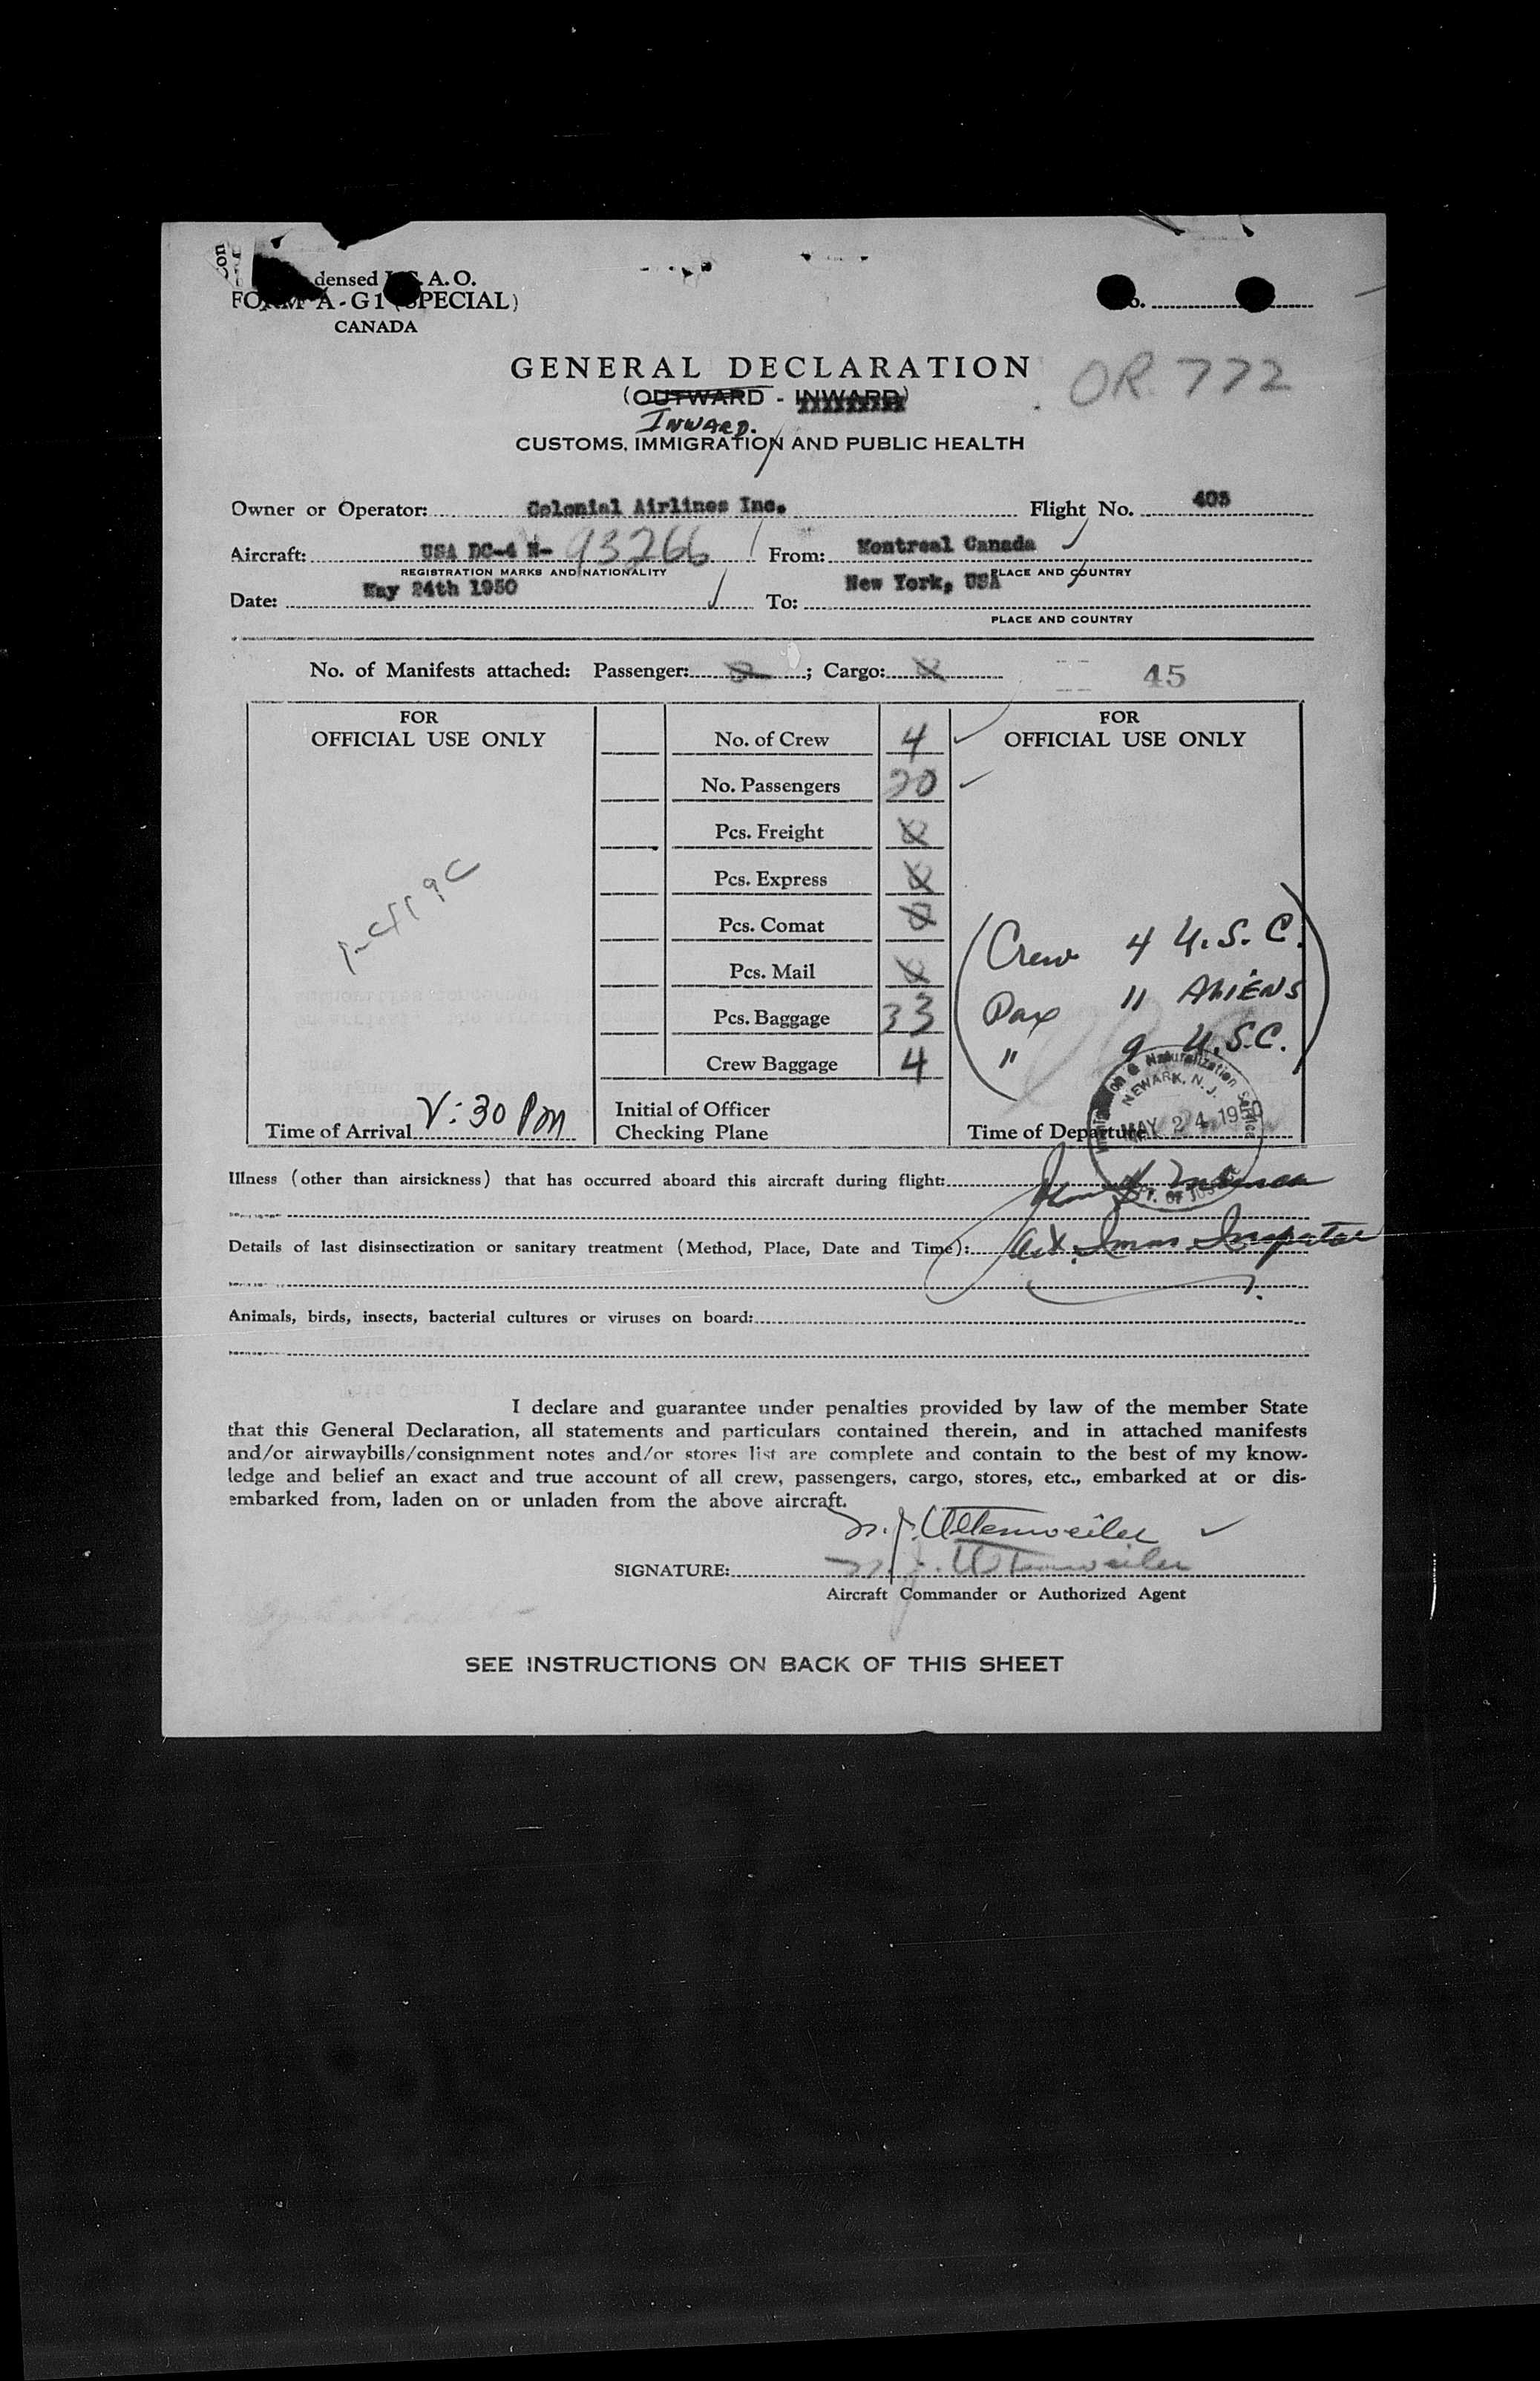 densed I.C.A.O.
FORM A-G1 (SPECIAL)
CANADA
GENERAL DECLARATION
OR 772
(OUTWARD - INWARD)
INWARD.
CUSTOMS, IMMIGRATION AND PUBLIC HEALTH
Owner or Operator: Colonial Airlines Inc. Flight No. 405
Aircraft: USA DC-4 N- 93266 From: Montreal Canada
REGISTRATION MARKS AND NATIONALITY PLACE AND COUNTRY
Date: May 24th 1950 To: New York, USA
PLACE AND COUNTRY
No. of Manifests attached: Passenger: ; Cargo: 45
FOR
OFFICIAL USE ONLY
No. of Crew 4
No. Passengers 20
Pcs. Freight
Pcs. Express
Pcs. Comat
Pcs. Mail
Pcs. Baggage 33
Crew Baggage 4
Initial of Officer
Checking Plane
Time of Arrival
FOR
OFFICIAL USE ONLY
Crew 4 U.S.C.
Pax 11 ALIENS
" 9 U.S.C.
Immigration & Naturalization Service
NEWARK, N. J.
MAY 24 1950
Time of Departure
Illness (other than airsickness) that has occurred aboard this aircraft during flight:
Details of last disinsectization or sanitary treatment (Method, Place, Date and Time): Act. Imm Inspector
Animals, birds, insects, bacterial cultures or viruses on board:
I declare and guarantee under penalties provided by law of the member State
that this General Declaration, all statements and particulars contained therein, and in attached manifests
and/or airwaybills/consignment notes and/or stores list are complete and contain to the best of my know-
ledge and belief an exact and true account of all crew, passengers, cargo, stores, etc., embarked at or dis-
embarked from, laden on or unladen from the above aircraft.
SIGNATURE:
Aircraft Commander or Authorized Agent
SEE INSTRUCTIONS ON BACK OF THIS SHEET